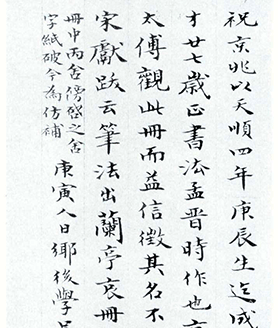 祝京兆以天順四年庚辰生迄成
才廿七歲正書法孟晉時作也
太傅觀此冊而益信徵其名不
宋獻跋云筆法出蘭亭哀冊
冊中丙舍傍之舍
字紙破今為仿補
庚寅人日鄉後學